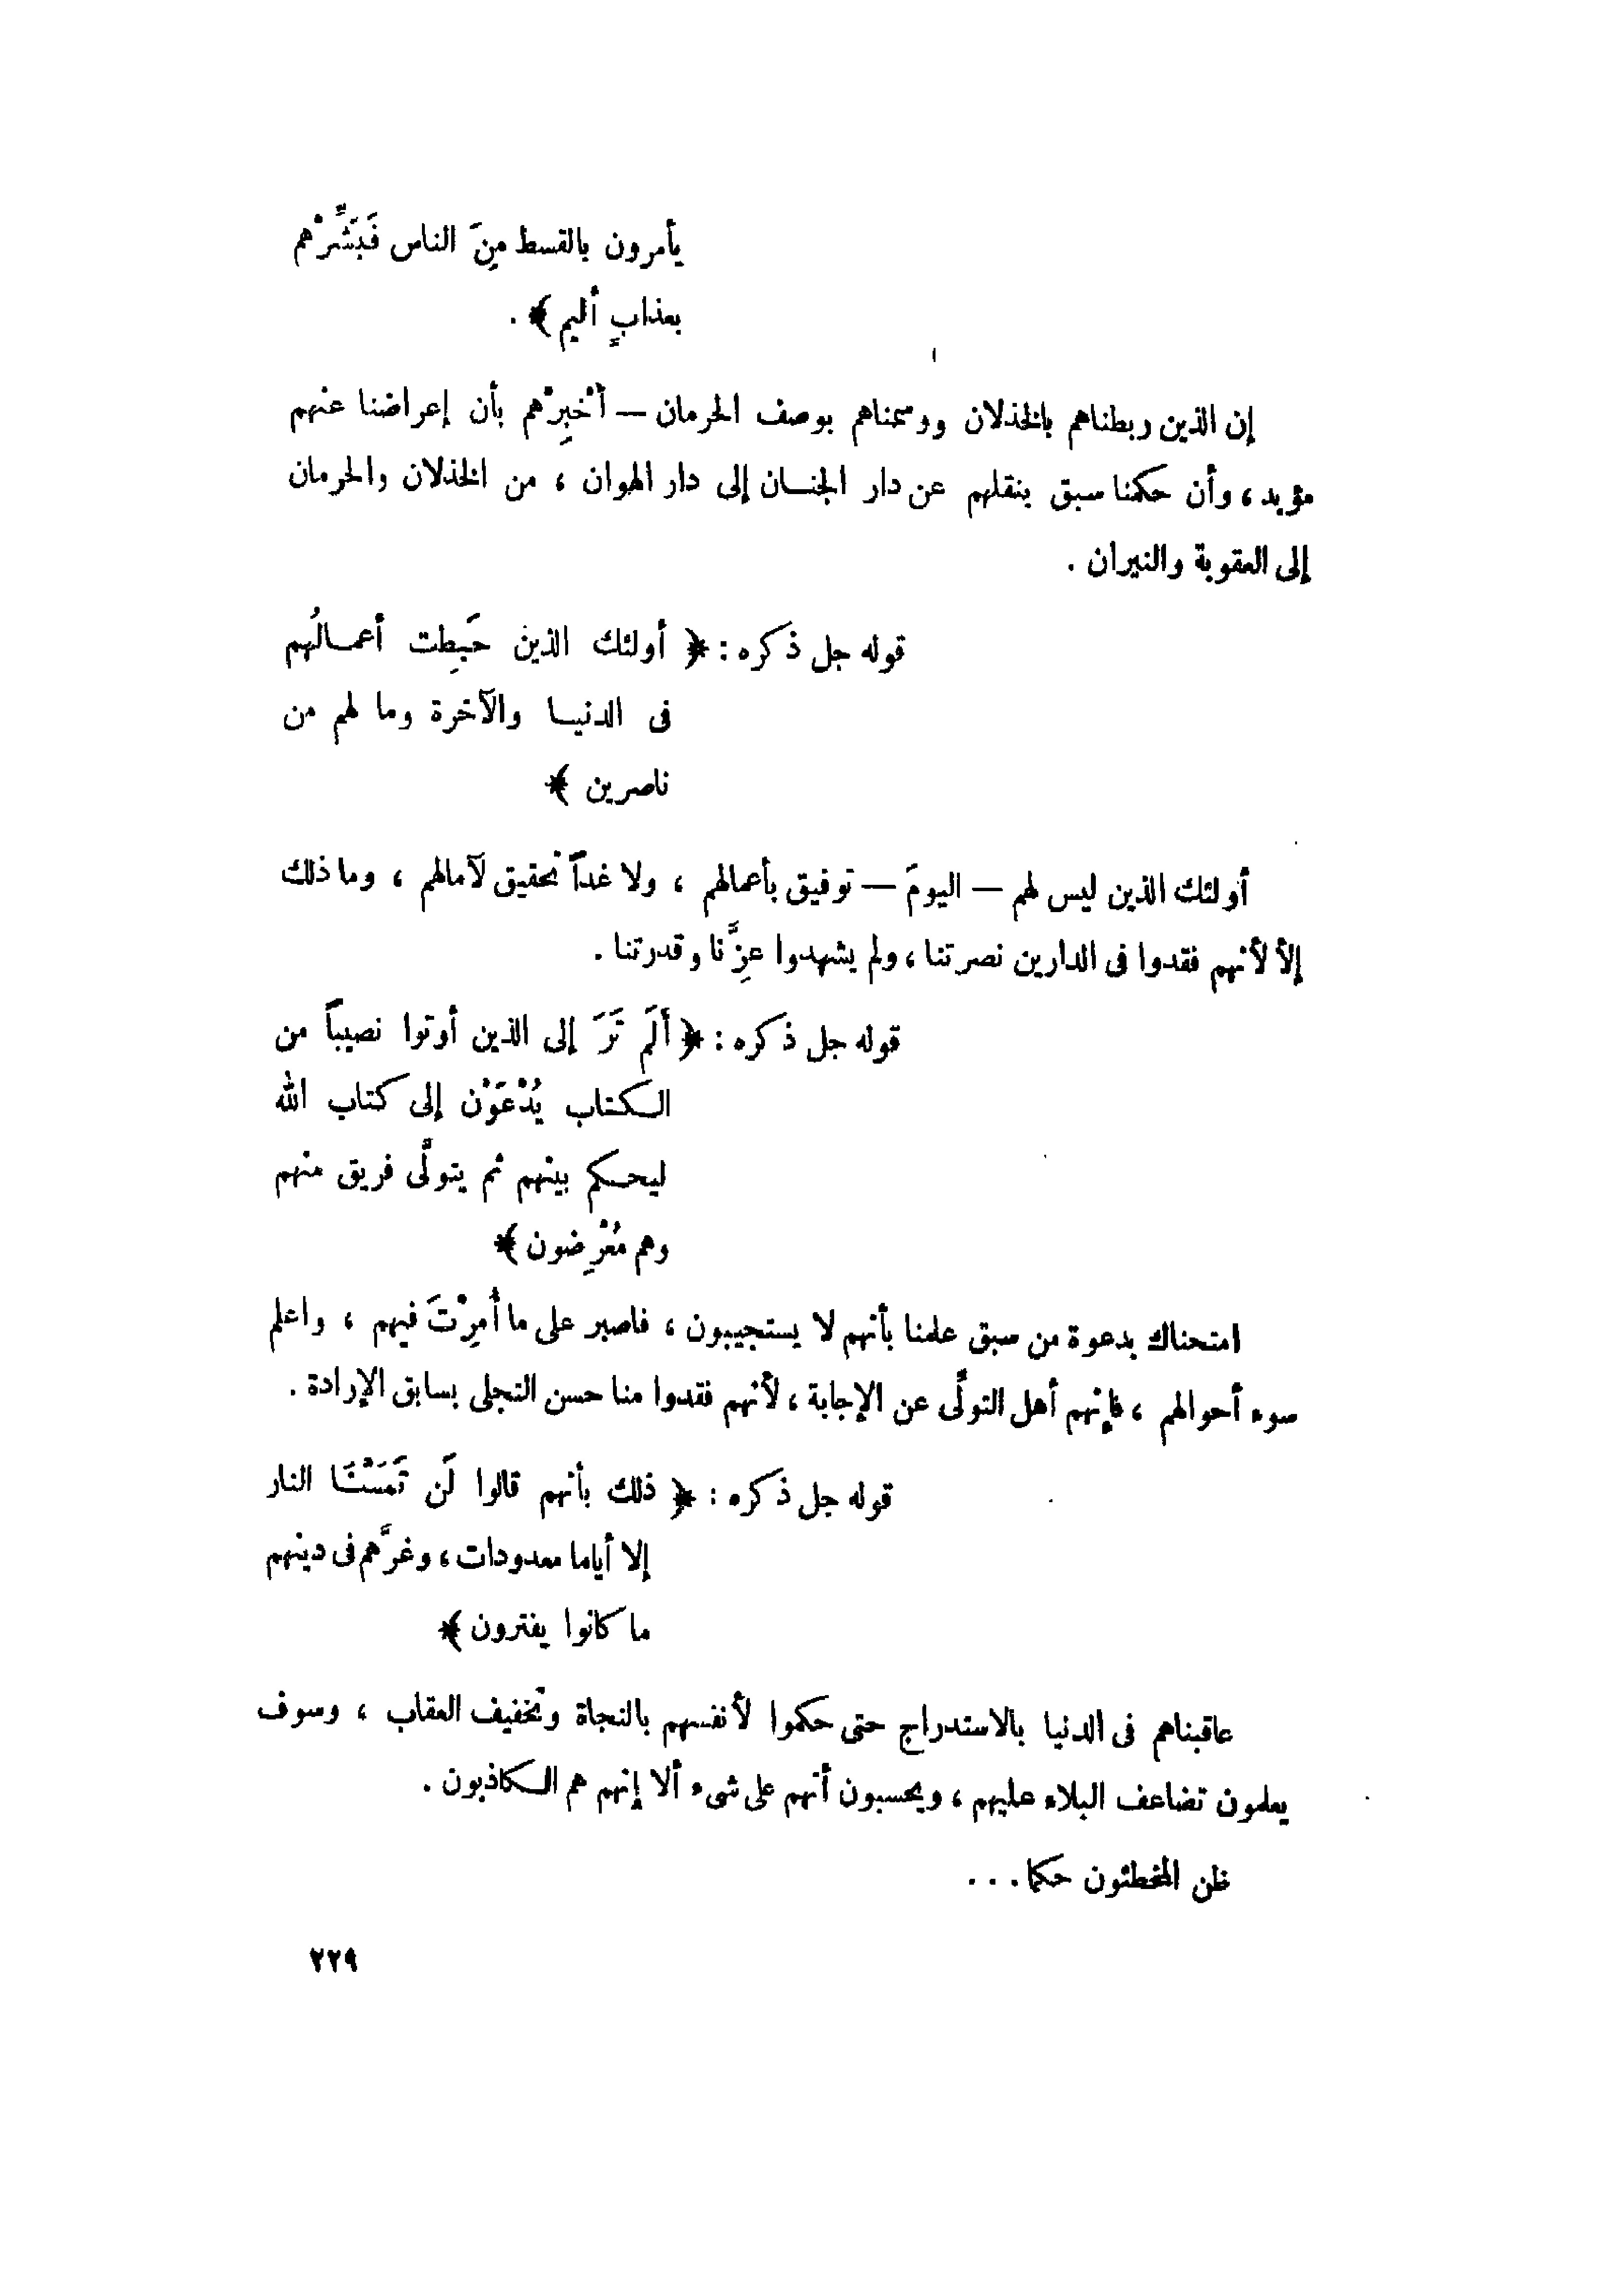 يأمرون بالقسط مِنَ الناس فَبَشِّرْهم
بعذابٍ أليم ﴾ .
إن الذين ربطناهم بالخذلان ووسمناهم بوصف الحرمان — أَخْبِرْهم بأن إعراضنا عنهم
مؤبد ، وأن حكمنا سبق بنقلهم عن دار الجنـــان إلى دار الهوان ، من الخذلان والحرمان
إلى العقوبة والنيران .
قوله جل ذكره : ﴿ أولئك الذين حَبِطت أعمـالُهم
فى الدنيـا والآخرة وما لهم من
ناصرين ﴾
أولئك الذين ليس لهم — اليومَ — توفيق بأعمالهم ، ولا غداً تحقيق لآمالهم ، وما ذلك
إلا لأنهم فقدوا فى الدارين نصرتنا ، ولم يشهدوا عِزَّنا وقدرتنا .
قوله جل ذكره : ﴿ أَلَم تَرَ إلى الذين أوتوا نصيباً من
الكتاب يُدْعَوْن إلى كتاب الله
ليحكم بينهم ثم يتولَّى فريق منهم
وهم مُعْرِضون ﴾
امتحناك بدعوة من سبق علمنا بأنهم لا يستجيبون ، فاصبر على ما أُمِرْتَ فيهم ، واعلم
سوء أحوالهم ، فإنهم أهل التولِّى عن الإجابة ، لأنهم فقدوا منا حسن التجلى بسابق الإرادة .
قوله جل ذكره : ﴿ ذلك بأنهم قالوا لَن تَمَسَّنَا النار
إلا أياما معدودات ، وغرَّهم فى دينهم
ما كانوا يفترون ﴾
عاقبناهم فى الدنيا بالاستدراج حتى حكموا لأنفسهم بالنجاة وتخفيف العقاب ، وسوف
يعلمون تضاعف البلاء عليهم ، ويحسبون أنهم على شىء ألا إنهم هم الكاذبون .
ظن المخطئون حكما . . .
٢٢٩